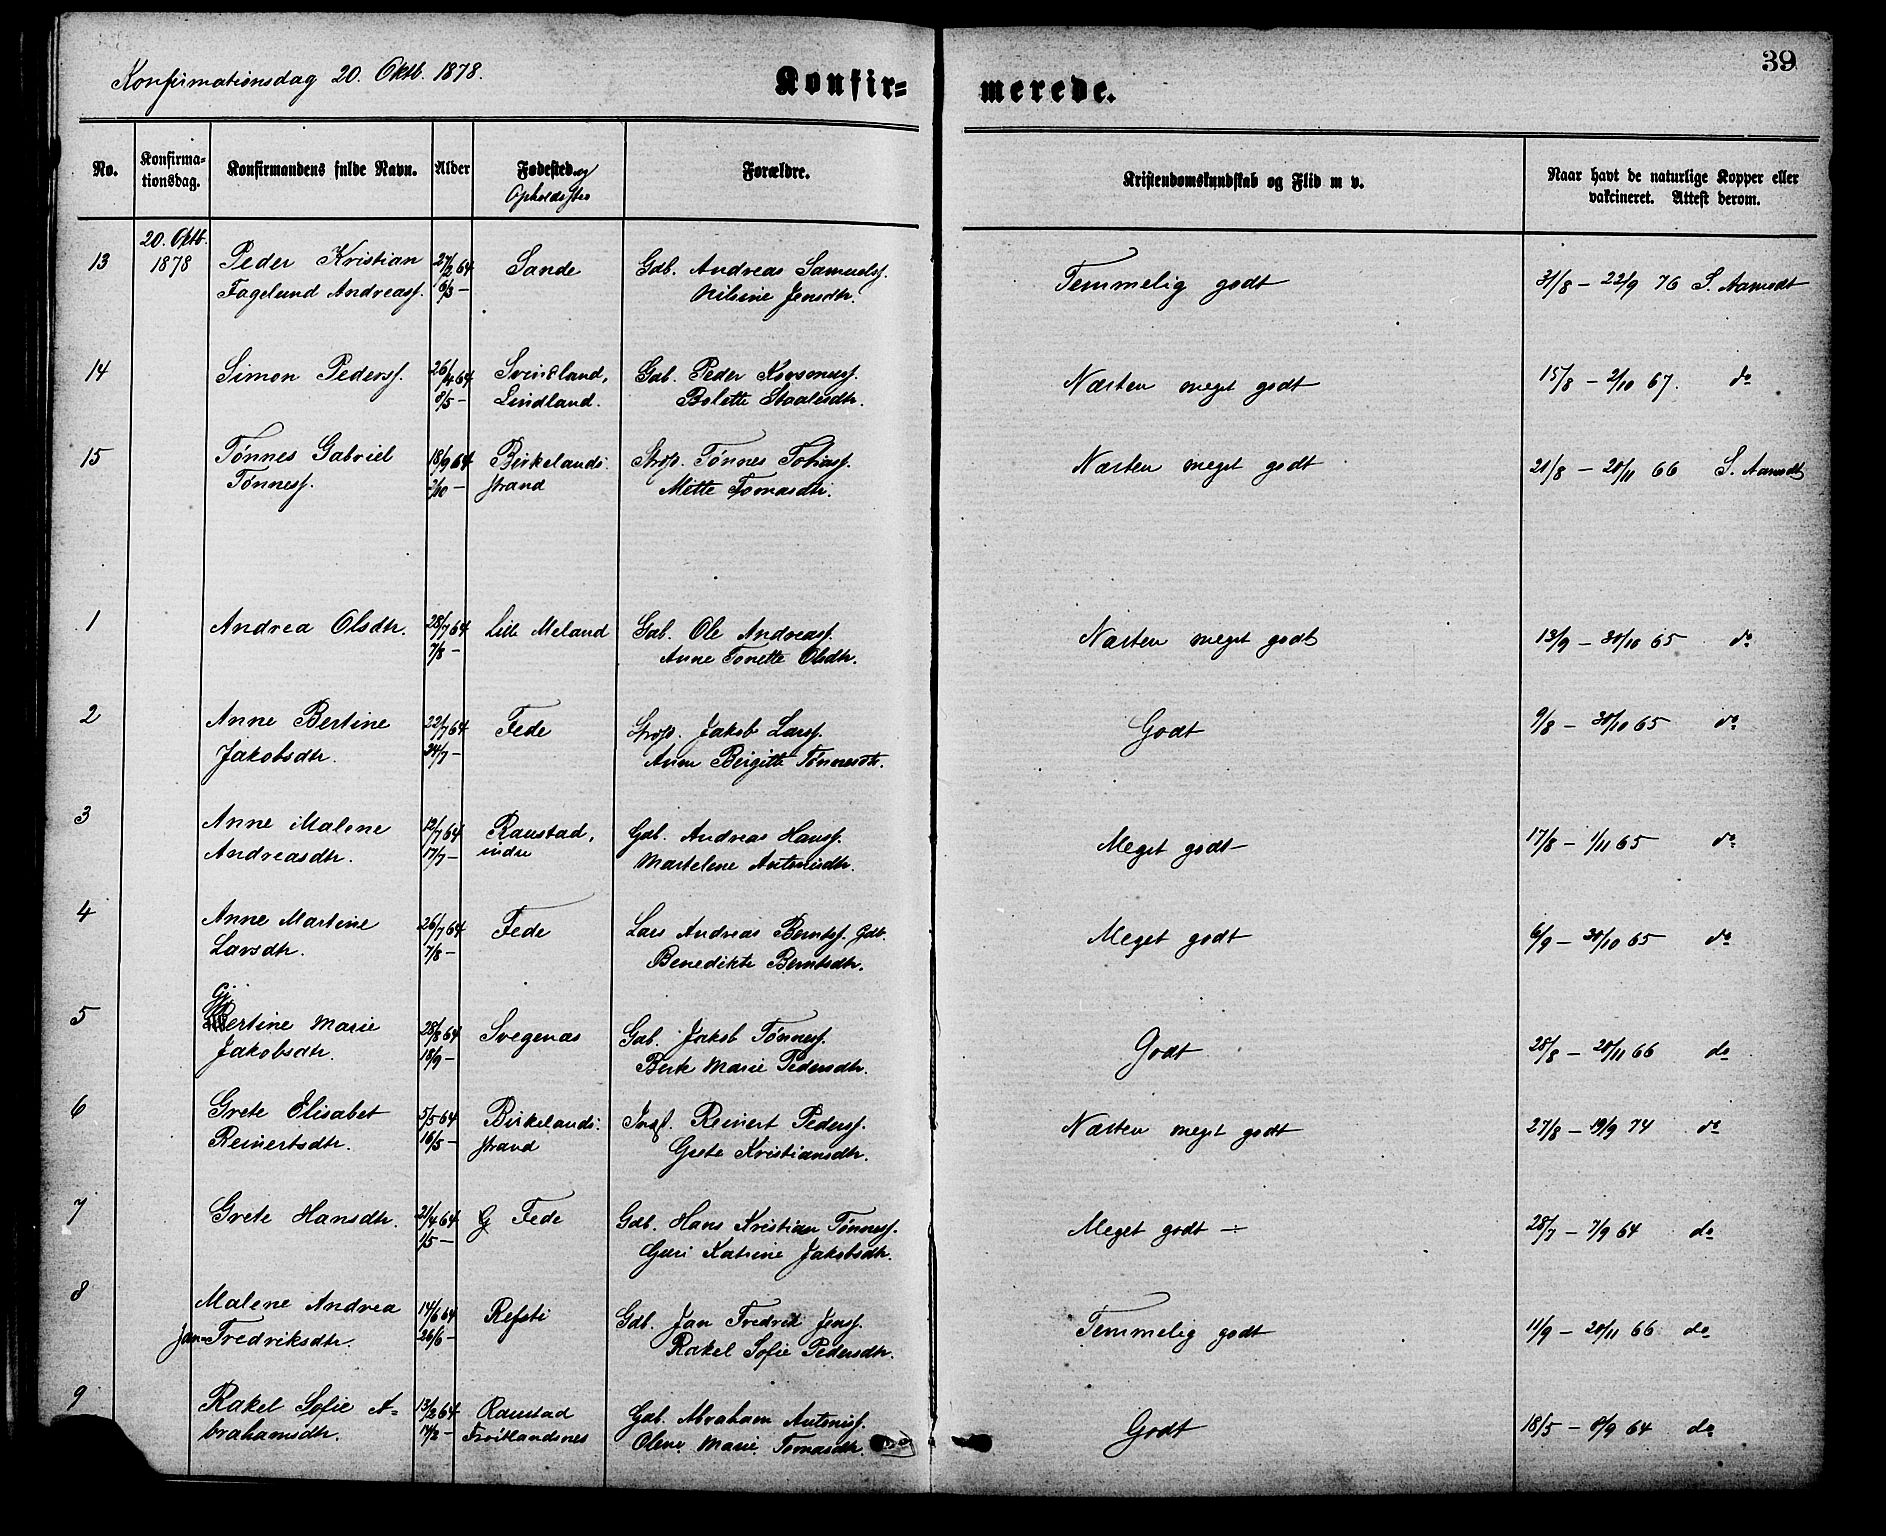 Konfirmationsdag 20. Oktb. 1878.
Konfir-
merede.
39
No.
Konfirma-
tionsdag.
Konfirmandens fulde Navn.
Alder
Fødested og
Opholdssted
Forældre.
Kristendomskundskab og Flid m v.
Naar havt de naturlige Kopper eller
vakcineret. Attest derom.
20. Oktb.
13 1878 Peder Kristian 27/2 64 Sande Gdb. Andreas Samuelsf. Temmelig godt 31/8 – 22/9 76 S. Aamodt
Fagelund Andreasf. 6/3 – Nilsine Jensdtr.
14 Simon Pedersf. 26/4 64 Svindland, Gdb. Peder Korneliusf. Næsten meget godt 15/8 – 2/10 67. do
8/5 – Lindland. Bolette Staalesdtr.
15 Tønnes Gabriel 18/9 64 Birkelands. Strsp. Tønnes Tobiasf. Næsten meget godt 21/8 – 20/11 66 S. Aamodt
Tønnesf. 2/10 – strand Mette Tomasdtr.
1 Andrea Olsdtr. 28/7 64 Lille Meland Gdb. Ole Andreasf. Næsten meget godt 13/9 – 30/10 65 do
7/8 – Anne Tonette Olsdtr.
2 Anne Bertine 22/7 64 Fede Strsp. Jakob Larsf. Godt 9/8 – 30/10 65 do
Jakobsdtr. 24/7 – Anne Birgitte Tønnesdtr.
3 Anne Malene 12/7 64 Raustad, Gdb. Andreas Hansf. Meget godt – 17/8 – 1/11 65 do
Andreasdtr. 17/7 – indre Martelene Antonisdtr.
4 Anne Martine 26/7 64 Fede Lars Andreas Berntsf. Gdb. Meget godt 6/9 – 30/10 65 do
Larsdtr. 7/8 – Benedikte Berntsdtr.
5 Gj Bertine Marie 28/8 64 Svegenæs Gdb. Jakob Tønnesf. Godt 28/8 – 20/11 66 do
Jakobsdtr. 18/9 – Berte Marie Pedersdtr.
6 Grete Elisabet 5/5 64 Birkelands. Reinert Pedersf. Næsten meget godt 27/8 – 19/9 74 do
Reinertsdtr. 16/5 – strand Grete Kristiansdtr.
7 Grete Hansdtr. 21/4 64 G Fede Gdb. Hans Kristian Tønnesf. Meget godt ÷ 28/7 – 7/9 64 do
1/5 – Guri Katrine Jakobsdtr.
8 Malene Andrea 14/6 64 Refsti Gdb. Jan Fredrik Jensf. Temmelig godt 11/9 – 20/11 66 do
Jan-Fredriksdtr. 26/6 – Rakel Sofie Pedersdtr.
9 Rakel Sofie A= 13/2 64 Raustad Gdb. Abraham Antonisf. Godt 18/5 – 8/9 64 do
brahamsdtr. 17/2 – Frøitlandsnes Olene Marie Tomasdtr.